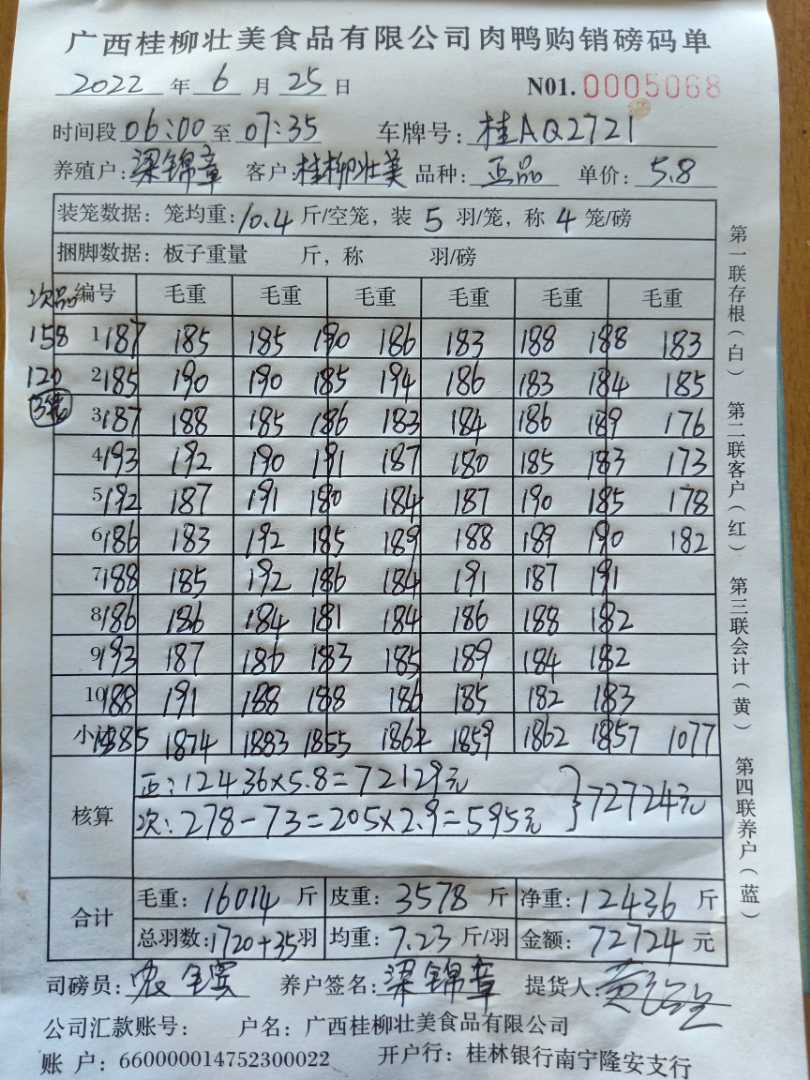 广西桂柳壮美食品有限公司肉鸭购销磅码单
2022 年 6 月 25 日 N01. 0005068
时间段 06:00 至 07:35 车牌号: 桂AQ2721
养殖户: 梁锦章 客户: 桂柳壮美 品种: 正品 单价: 5.8
装笼数据: 笼均重: 10.4 斤/空笼, 装 5 羽/笼, 称 4 笼/磅
捆脚数据: 板子重量 斤, 称 羽/磅
次品 编号 毛重 毛重 毛重 毛重 毛重 毛重
158 1 187 185 185 190 186 183 188 188 183
120 2 185 190 190 185 194 186 183 184 185
3 187 188 185 186 183 184 186 189 176
4 193 192 190 191 187 180 185 183 173
5 192 187 191 180 184 187 190 185 178
6 186 183 192 185 189 188 189 190 182
7 188 185 192 186 184 191 187 191
8 186 186 184 181 184 186 188 182
9 193 187 186 183 185 189 184 182
10 188 191 188 188 186 185 182 183
小 1885 1874 1883 1855 1862 1859 1862 1857 1077
核算
正: 12436×5.8=72129元
次: 278-73=205×2.9=595元 } 72724元
合计
毛重: 16014 斤 皮重: 3578 斤 净重: 12436 斤
总羽数: 1720+35 羽 均重: 7.23 斤/羽 金额: 72724 元
司磅员: 养户签名: 梁锦章 提货人: 黄
公司汇款账号: 户名: 广西桂柳壮美食品有限公司
账 户: 660000014752300022 开户行: 桂林银行南宁隆安支行
第一联存根(白) 第二联客户(红) 第三联会计(黄) 第四联养户(蓝)